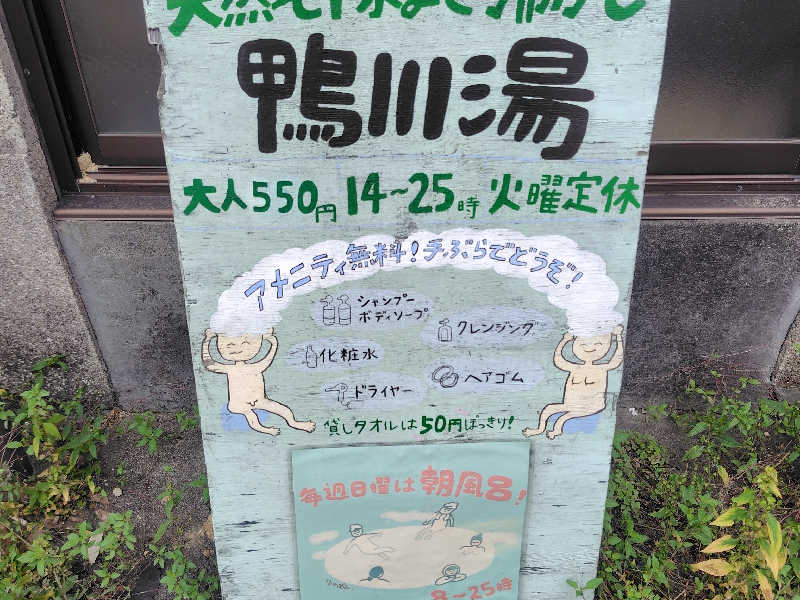 鴨川湯
大人550円 14～25時 火曜定休
アメニティ無料！手ぶらでどうぞ！
シャンプー
ボディソープ
クレンジング
化粧水
ヘアゴム
ドライヤー
貸しタオルは50円ぽっきり！
毎週日曜は朝風呂！
8～25時